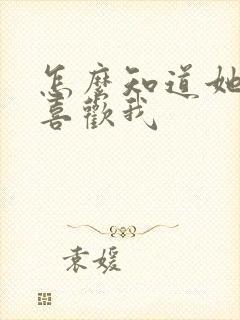 怎麼知道她
喜歡我
袁媛